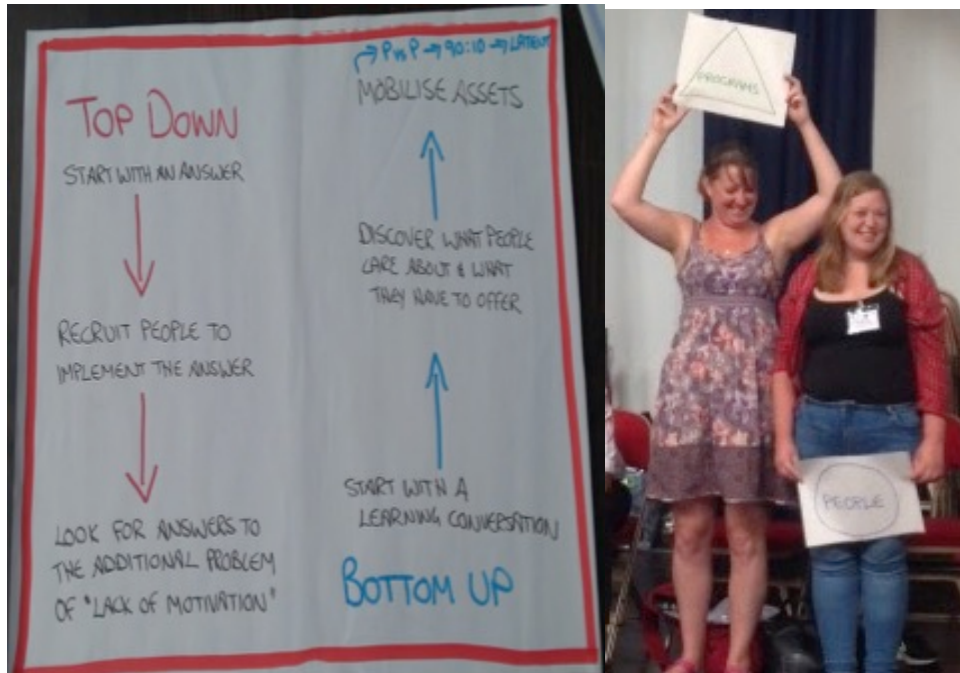 TOP DOWN
START WITH AN ANSWER
RECRUIT PEOPLE TO
IMPLEMENT THE ANSWER
LOOK FOR ANSWERS TO
THE ADDITIONAL PROBLEM
OF "LACK OF MOTIVATION"
→ P vs P → 90:10 → LATENT
MOBILISE ASSETS
DISCOVER WHAT PEOPLE
CARE ABOUT & WHAT
THEY HAVE TO OFFER
START WITH A
LEARNING CONVERSATION
BOTTOM UP
PROGRAMS
PEOPLE